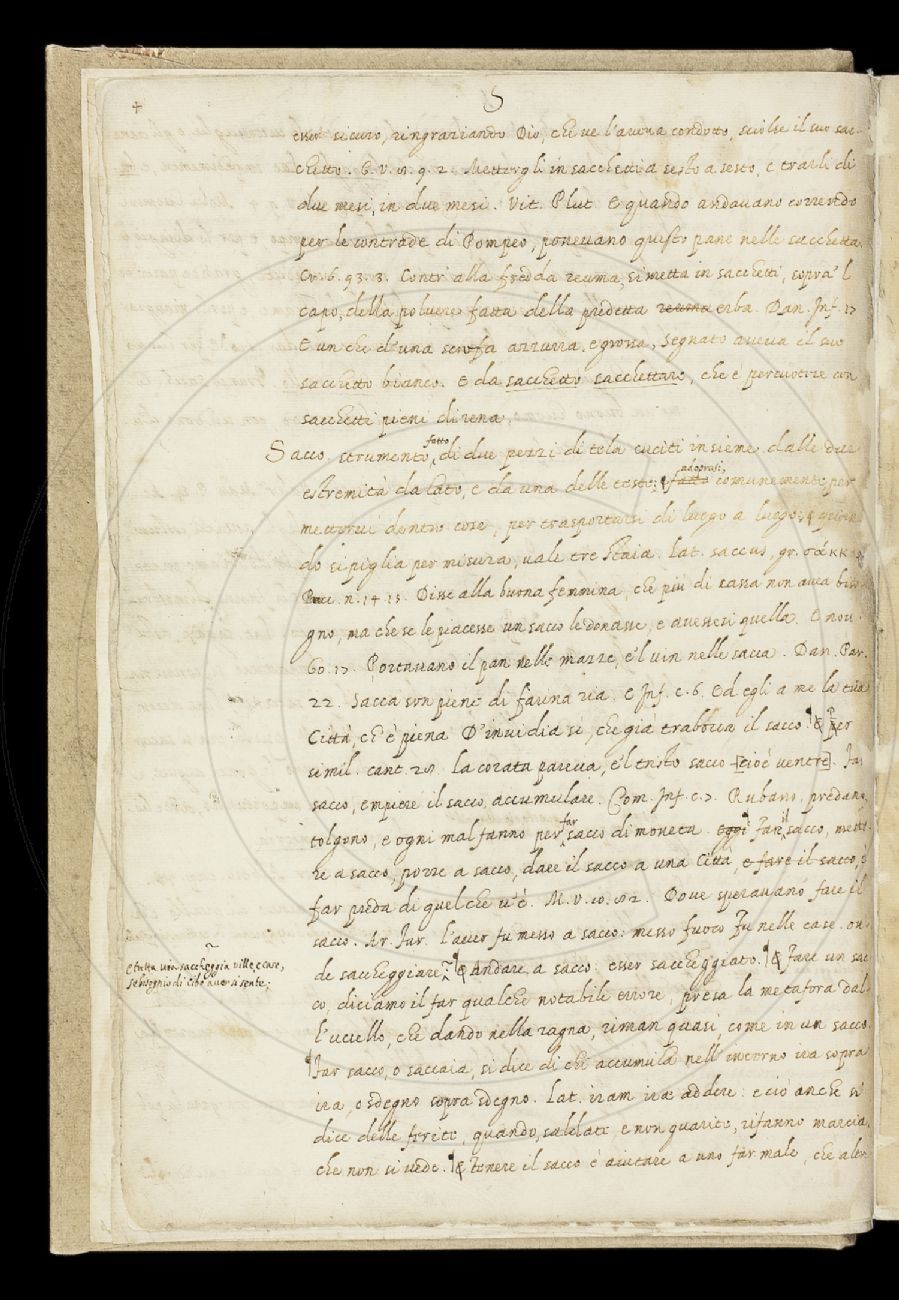 S
esser sicuro, ringraziando Dio, che ve l'aveua condotto, sciolse il suo sac-
chetto. G. V. 9. 2. Mettergli in sacchetti a sesto a sesto, e trarli di
due mesi, in due mesi. Vit. Plut. E quando andauano correndo
per le contrade di Pompeo, poneuano questo pane nelle sacchetta
Cr. 6. 93. 3. Contr' alla fredda reuma, si metta in sacchetti, sopra 'l
capo, della poluere fatta della predetta reuma erba. Dan. Inf. 17
E un che d'una scrofa azzurra, e grossa, Segnato aueua il suo
sacchetto bianco. E da sacchetto sacchettare, che è percuotere con
sacchetti pieni di rena.
Sacco. strumento fatto di due pezzi di tela cuciti insieme dalle due
estremità da lato, e da una delle teste: fatto adoprasi comunemente per
metterui dentro cose, per trasportarsi di luogo a luogo: e quan
do si piglia per misura, uale tre staia. Lat. saccus, gr. σάκκος
Bocc. n. 14 15. Disse alla buona femmina, che più di cassa non auea biso
gno, ma che se le piacesse un sacco le donasse, e auessesi quella. E nou.
60. 17. Portauano il pan nelle mazze, e 'l uin nelle sacca. Dan. Par.
22. Sacca son piene di farina ria. E Inf. c. 6. Ed egli a me la tua
Città, ch' è piena D'inuidia sì, che già trabocca il sacco. & Per
simil. cant. 28. La corata pareua, e 'l tristo sacco [cioè ventre]. Far
sacco, empiere il sacco, accumulare. Com. Inf. c. 7. Rubano, predano,
tolgono, e ogni mal fanno per far sacco di moneta. oggi Fare il sacco, mette
re a sacco, porre a sacco, dare il sacco a una Città, e fare il sacco, è
far preda di quel che u'è. M. V. 10. 82. Doue sperauano fare il
sacco. Ar. Fur. L'auer fu messo a sacco: messo fuoco Fu nelle case. on
de saccheggiare. & Andare a sacco: esser saccheggiato. & Fare un sac
co, diciamo il far qualche notabile errore, presa la metafora dal-
l'uccello, che dando nella ragna, riman quasi, come in un sacco.
Far sacco, o saccaia, si dice di chi accumula nell' interno ira sopra
ira, o sdegno sopra sdegno. Lat. iram irae addere: e ciò anche si
dice delle ferite, quando, saldate, e non guarite, rifanno marcia,
che non si vede. & Tenere il sacco è aiutare a uno far male, che altr
e tutta uia saccheggia uille, e case,
se bisogno di cibo auer si sente;